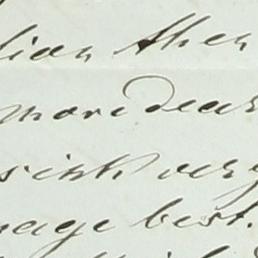 lian then
more dear
sink very
nage best.